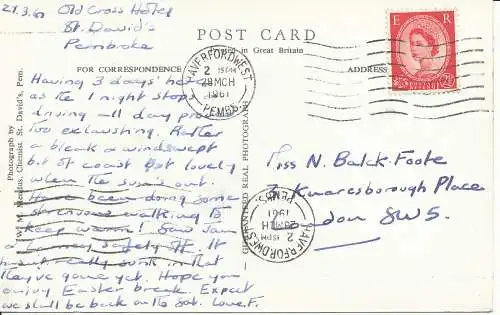 Old Cross Hotel
St. David's
Pembroke
POST CARD
Printed in Great Britain
FOR CORRESPONDENCE
ADDRESS
Having 3 days' here
as the 1 night stops
driving all day
too exhausting. Rather
a break a windswept
bit of coast but lovely
when the sun's out.
Have been doing some
strenuous walking to
keep warm! Saw Jan
safely off. It
hasn't really sunk in that
they've gone yet. Hope you
enjoy Easter break. Expect
we shall be back on the Sat. Love F.
Miss N. Balck-Foote
Knaresborough Place
S.W.5.
HAVERFORDWEST
2 15PM
28 MCH
1961
PEMBS.
HAVERFORDWEST
2 15PM
28 MCH
1961
PEMBS.
E R
GUARANTEED REAL PHOTOGRAPH
Photograph by
Chemist, St. David's, Pem.